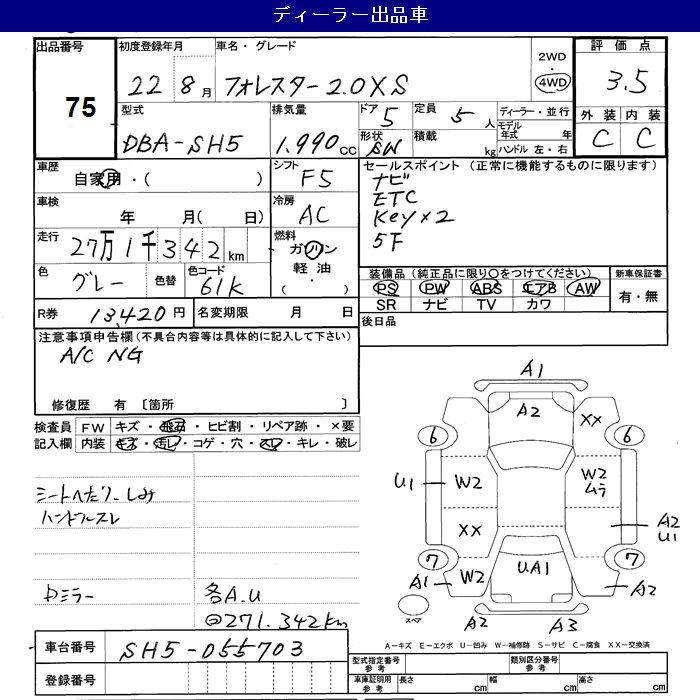 ディーラー出品車
出品番号
75
初度登録年月
22 8月
車名・グレード
フォレスター 2.0XS
2WD
・
4WD
評価点
3.5
外装 内装
C C
型式
DBA-SH5
排気量
1.990cc
ドア 5
形状 SW
定員 5人
積載 kg
ディーラー・並行
モデル年式 年
ハンドル 左・右
車歴
自家用・( )
シフト
F5
車検
年 月( 日)
冷房
AC
走行
27万1千342km
燃料
ガソリン
軽油
( ・ )
色
グレー
色替
色コード
61K
R券 13,420円
名変期限 月 日
セールスポイント(正常に機能するものに限ります)
ナビ
ETC
Key×2
5F
装備品(純正品に限り○をつけてください)
PS PW ABS エアB AW
SR ナビ TV カワ
新車保証書
有・無
後日品
注意事項申告欄(不具合内容等は具体的に記入して下さい)
A/C NG
修復歴 有 〔箇所 〕
検査員
記入欄
FW キズ・飛石・ヒビ割・リペア跡・×要
内装 キズ・汚レ・コゲ・穴・スレ・キレ・破レ
シートへたり.しみ
ハンドルスレ
各A.U
271.342km
A1
A2
XX
6
6
U1
W2
W2
ムラ
XX
A2
U1
7
7
A1
W2
UA1
A2
スペア
A2
A3
A-キズ E-エクボ U-凹み W-補修跡 S-サビ C-腐食 XX-交換済
車台番号 SH5-055703
登録番号
型式指定番号
参考
類別区分番号
参考
車庫証明用
参考
長さ cm
幅 cm
高さ cm